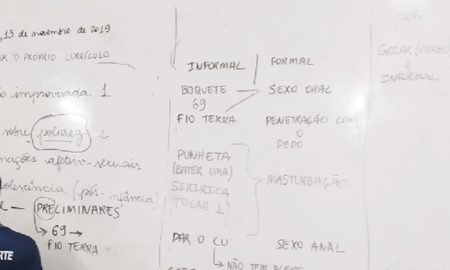 , 13 de novembro de 2019
O PRÓPRIO CURRÍCULO
improvisada 1
sobre polidez e
mações afetivo-sexuais
dolescência (pós-infância)
PRELIMINARES
69
FIO TERRA
INFORMAL
FORMAL
BOQUETE
SEXO ORAL
69
FIO TERRA
PENETRAÇÃO COM
O
DEDO
PUNHETA
(BATER UMA)
MASTURBAÇÃO
SIRIRICA
TOCAR 1)
DAR O CU
SEXO ANAL
NÃO TEM ACENTO
GOZAR
INFORMAL
RTE